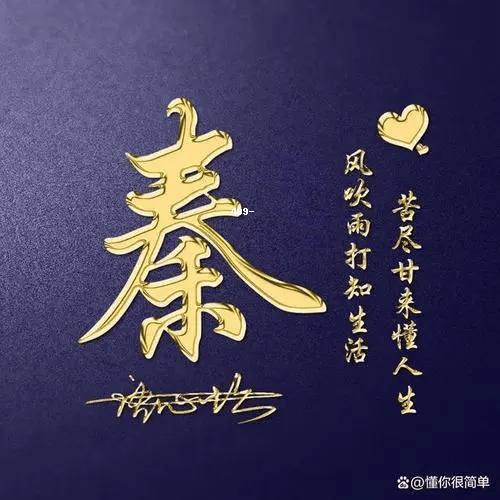 秦
风吹雨打知生活
苦尽甘来懂人生
@懂你很简单